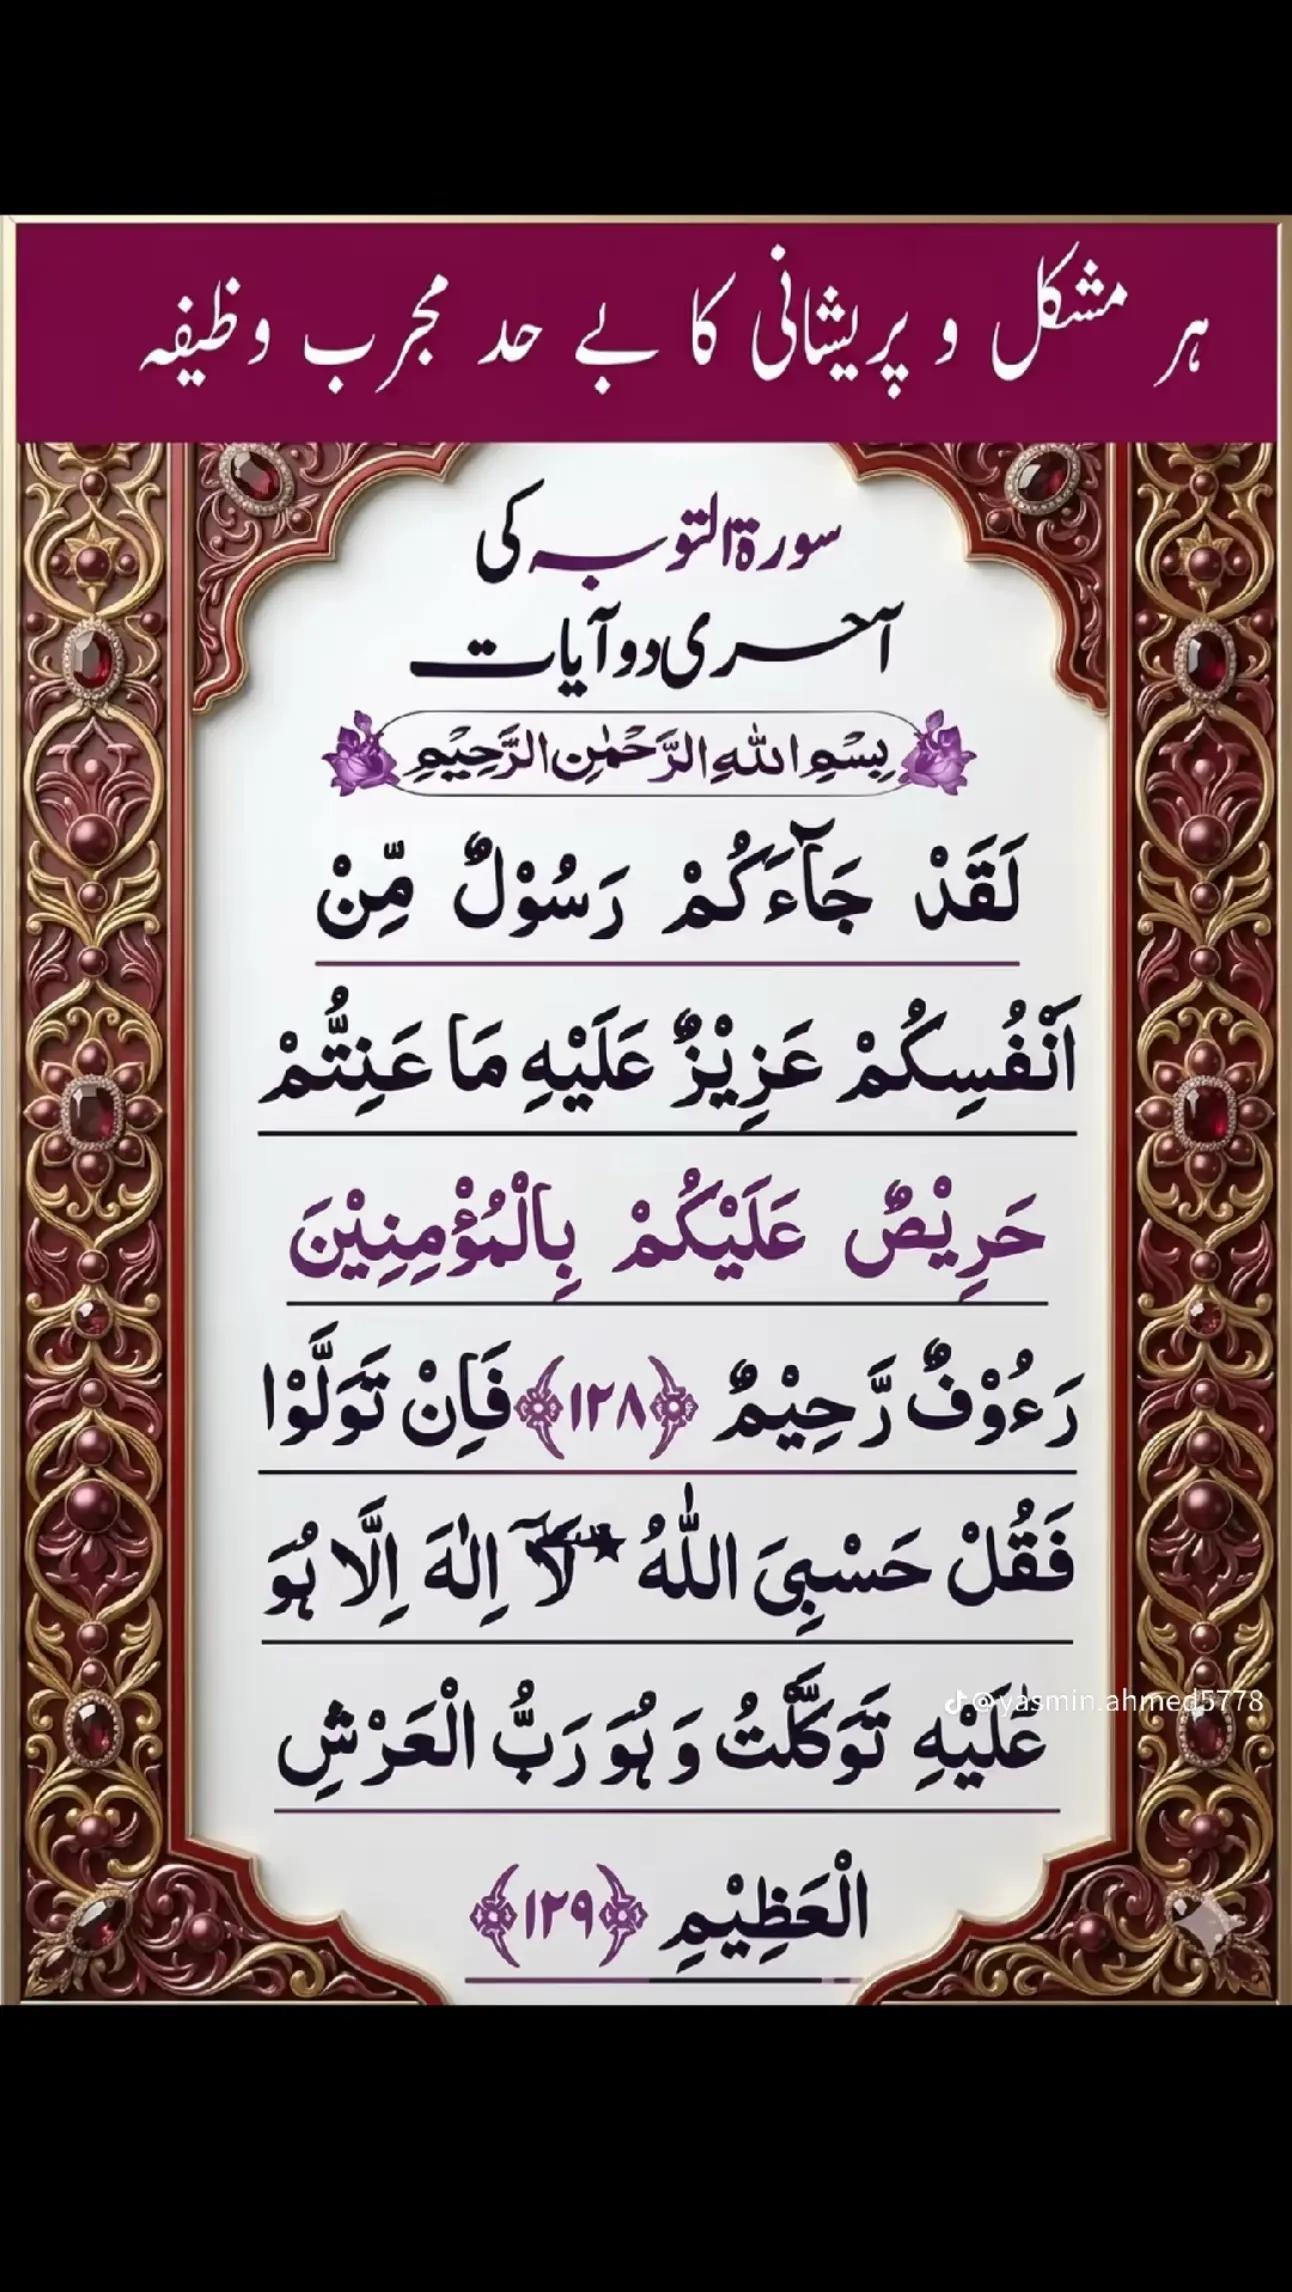 ہر مشکل و پریشانی کا بے حد مجرب وظیفہ
سورۃ التوبہ کی
آخری دو آیات
بِسْمِ اللّٰهِ الرَّحْمٰنِ الرَّحِيْمِ
لَقَدْ جَآءَكُمْ رَسُوْلٌ مِّنْ
اَنْفُسِكُمْ عَزِيْزٌ عَلَيْهِ مَا عَنِتُّمْ
حَرِيْصٌ عَلَيْكُمْ بِالْمُؤْمِنِيْنَ
رَءُوْفٌ رَّحِيْمٌ ﴿۱۲۸﴾ فَاِنْ تَوَلَّوْا
فَقُلْ حَسْبِیَ اللّٰهُ ★ لَآ اِلٰهَ اِلَّا هُوَ
عَلَيْهِ تَوَكَّلْتُ وَ هُوَ رَبُّ الْعَرْشِ
@yasmin.ahmed5778
الْعَظِيْمِ ﴿۱۲۹﴾